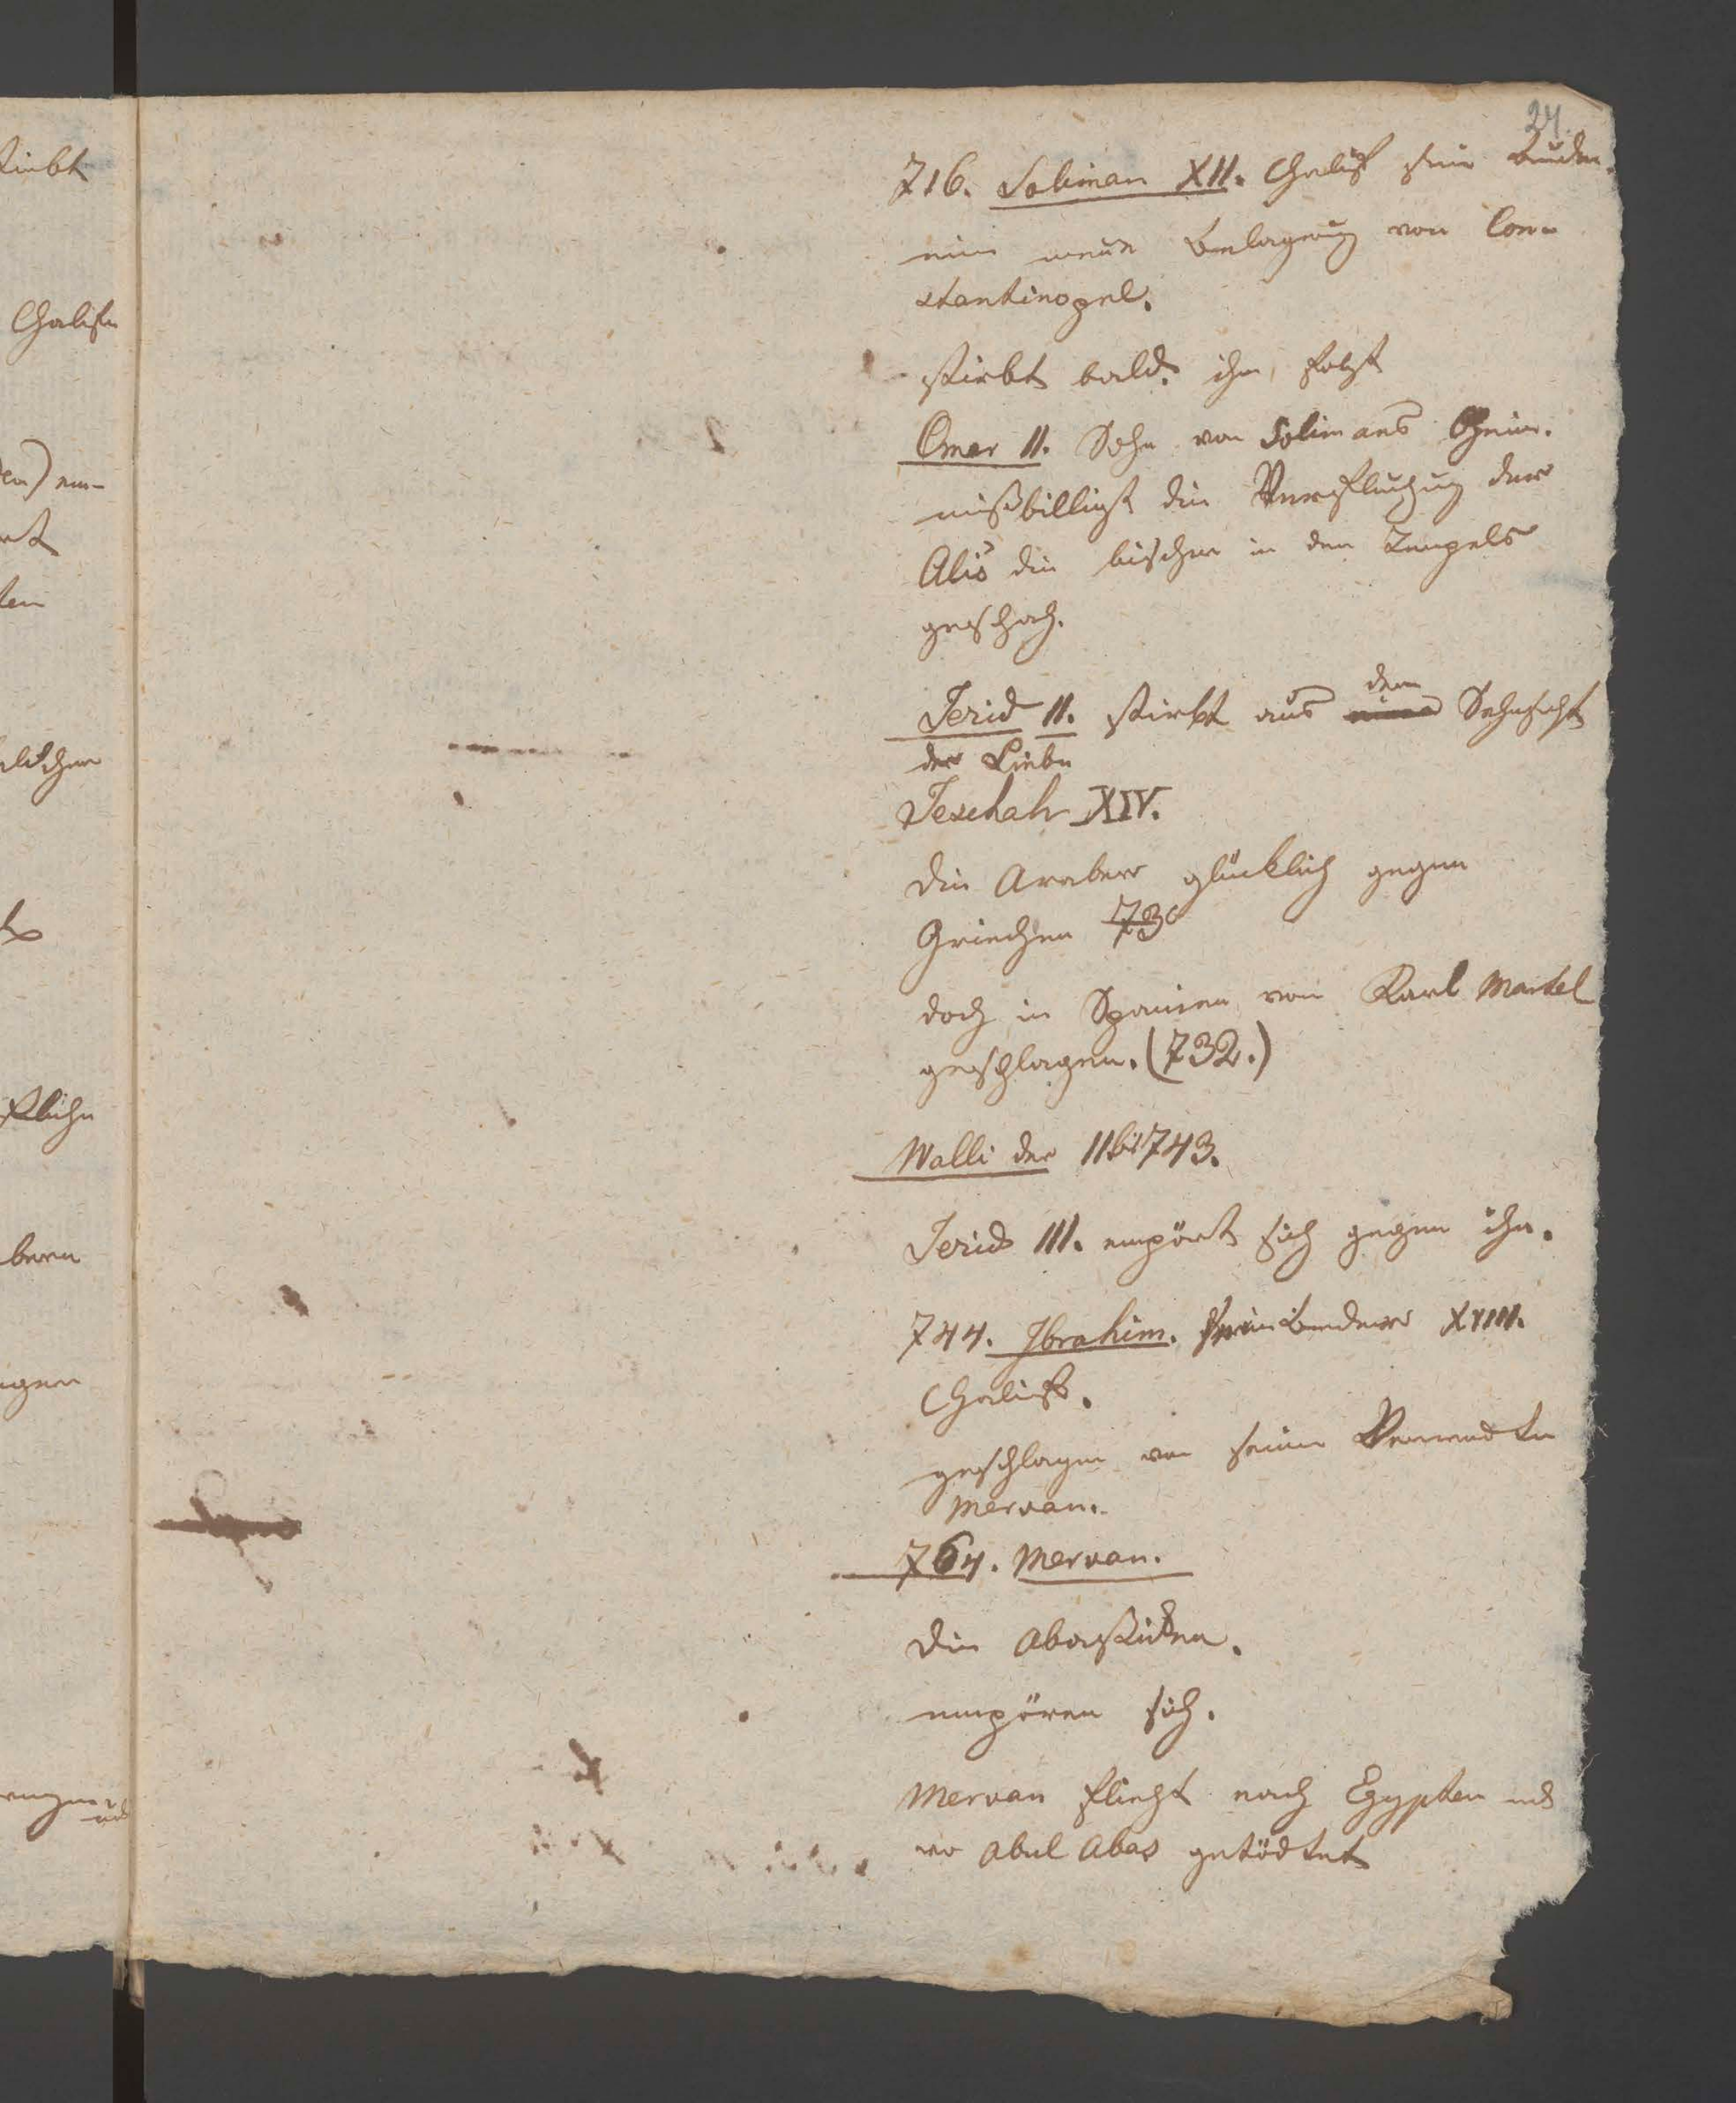 24.
716. Soliman XII. Chalif sein Bruder.
eine neue Belagerung von Con-
stantinopel.
stirbt bald. ihm folgt
Omar II. Sohn von Solimans
mißbilligt die Verfluchung der
Alis die bisher in den Tempels
geschah.
Jerid II. stirbt aus dem Sehnsucht
der Liebe
Jeschah XIV.
Die Araber glücklich gegen
Griechen 73
doch in Spanien von Karl Martel
geschlagen. (732.)
Walli der II bis 743.
Jerid III. empört sich gegen ihn.
744. Ibrahim. sein Bruder XVIII.
Chalif.
geschlagen von seinem Verwandten
Mervan.
764. Mervan.
Die Abassiden.
empören sich.
Mervan flieht nach Egypten und
wo Abul Abas getödtet
stirbt
Chalifen